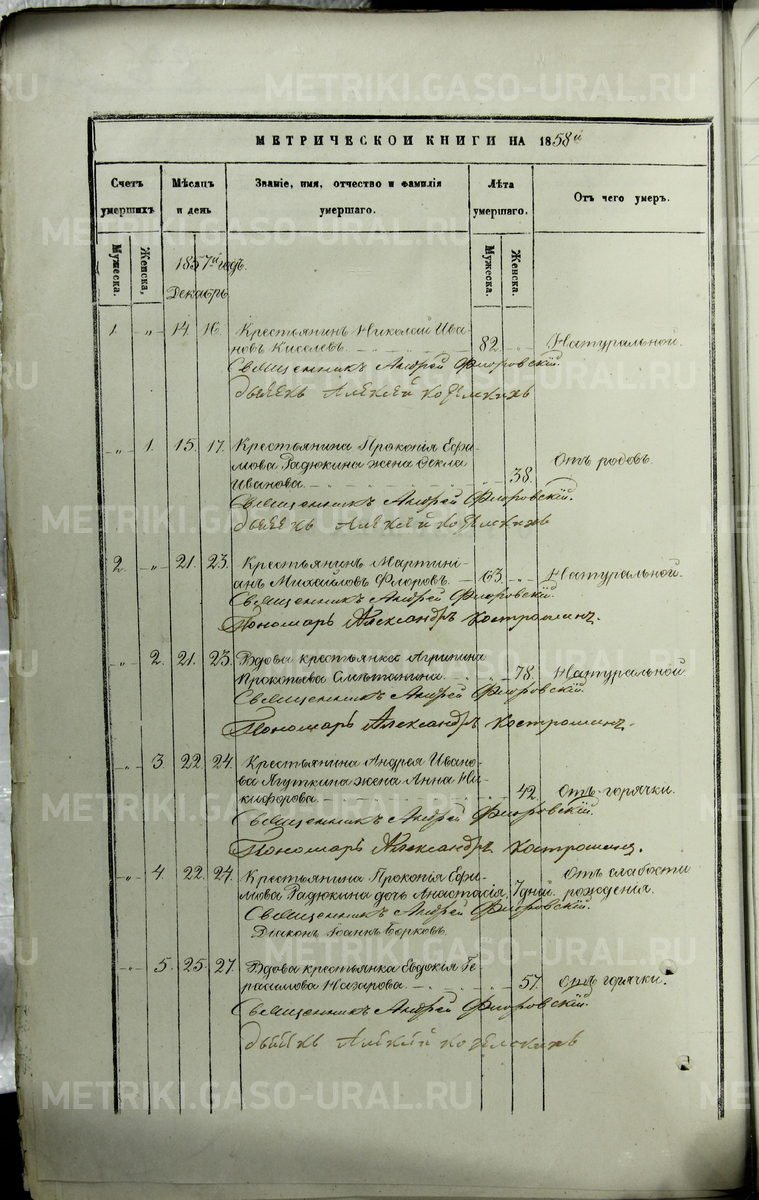 МЕТРИЧЕСКОЙ КНИГИ НА 1858й
Счетъ умершихъ
Мѣсяцъ и день
Званіе, имя, отчество и фамилія умершаго.
Лѣта умершаго.
Отъ чего умеръ.
Мужеска.
Женска.
Мужеска.
Женска.
1857й годъ.
Декабрь
1 „ 14. 16. Крестьянинъ Николай Ива-
новъ Киселевъ 82 „ Натуральной.
Священникъ Андрей Флоровскій.
Алексей
„ 1. 15. 17. Крестьянина Прокопія Ефи-
мова Радюкина жена Фекла
Иванова „ 38. Отъ родовъ.
Священникъ Андрей Флоровскій.
Алексей
2 „ 21. 23. Крестьянинъ Мартині-
анъ Михайловъ Флоровъ. 63. „ Натуральной.
Священникъ Андрей Флоровскій.
Пономарь Александръ Костроминъ.
„ 2. 21. 23. Вдова крестьянка Агрипина
Прокопьева Смѣтанина. „ 78. Натуральной.
Священникъ Андрей Флоровскій.
Пономарь Александръ Костроминъ.
„ 3. 22. 24. Крестьянина Андрея Ивано-
ва Ягуткина жена Анна Ни-
кифорова „ 42. Отъ горячки.
Священникъ Андрей Флоровскій.
Пономарь Александръ Костроминъ.
„ 4. 22. 24. Крестьянина Прокопія Ефи- Отъ слабости
мова Радюкина дочь Анастасія, 7 дней. рожденія.
Священникъ Андрей Флоровскій.
Діаконъ Іоаннъ Борковъ.
„ 5. 25. 27. Вдова крестьянка Евдокія Ге-
расимова Назарова „ 57. Отъ горячки.
Священникъ Андрей Флоровскій.
Алексей
METRIKI.GASO-URAL.RU